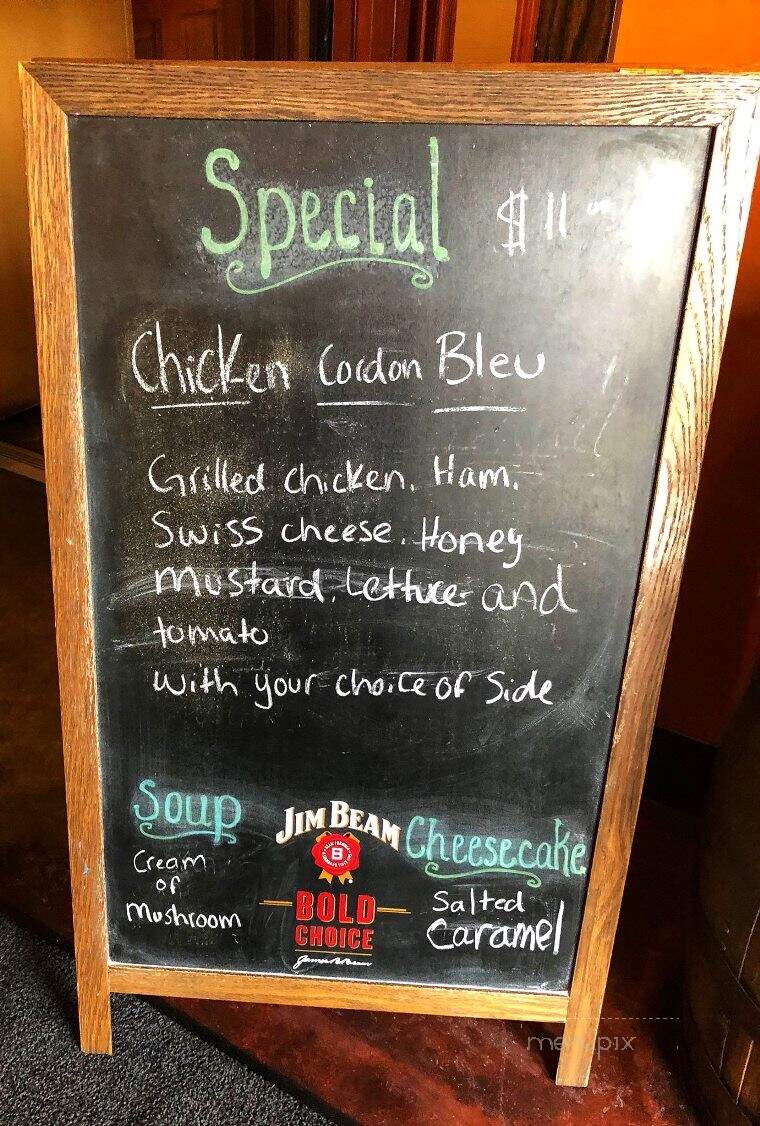 Special $11
Chicken Cordon Bleu
Grilled chicken, Ham,
Swiss cheese, Honey
Mustard, Lettuce and
tomato
with your choice of Side
Soup
Cream
of
Mushroom
JIM BEAM
B
BOLD
CHOICE
Cheesecake
Salted
Caramel
menupix